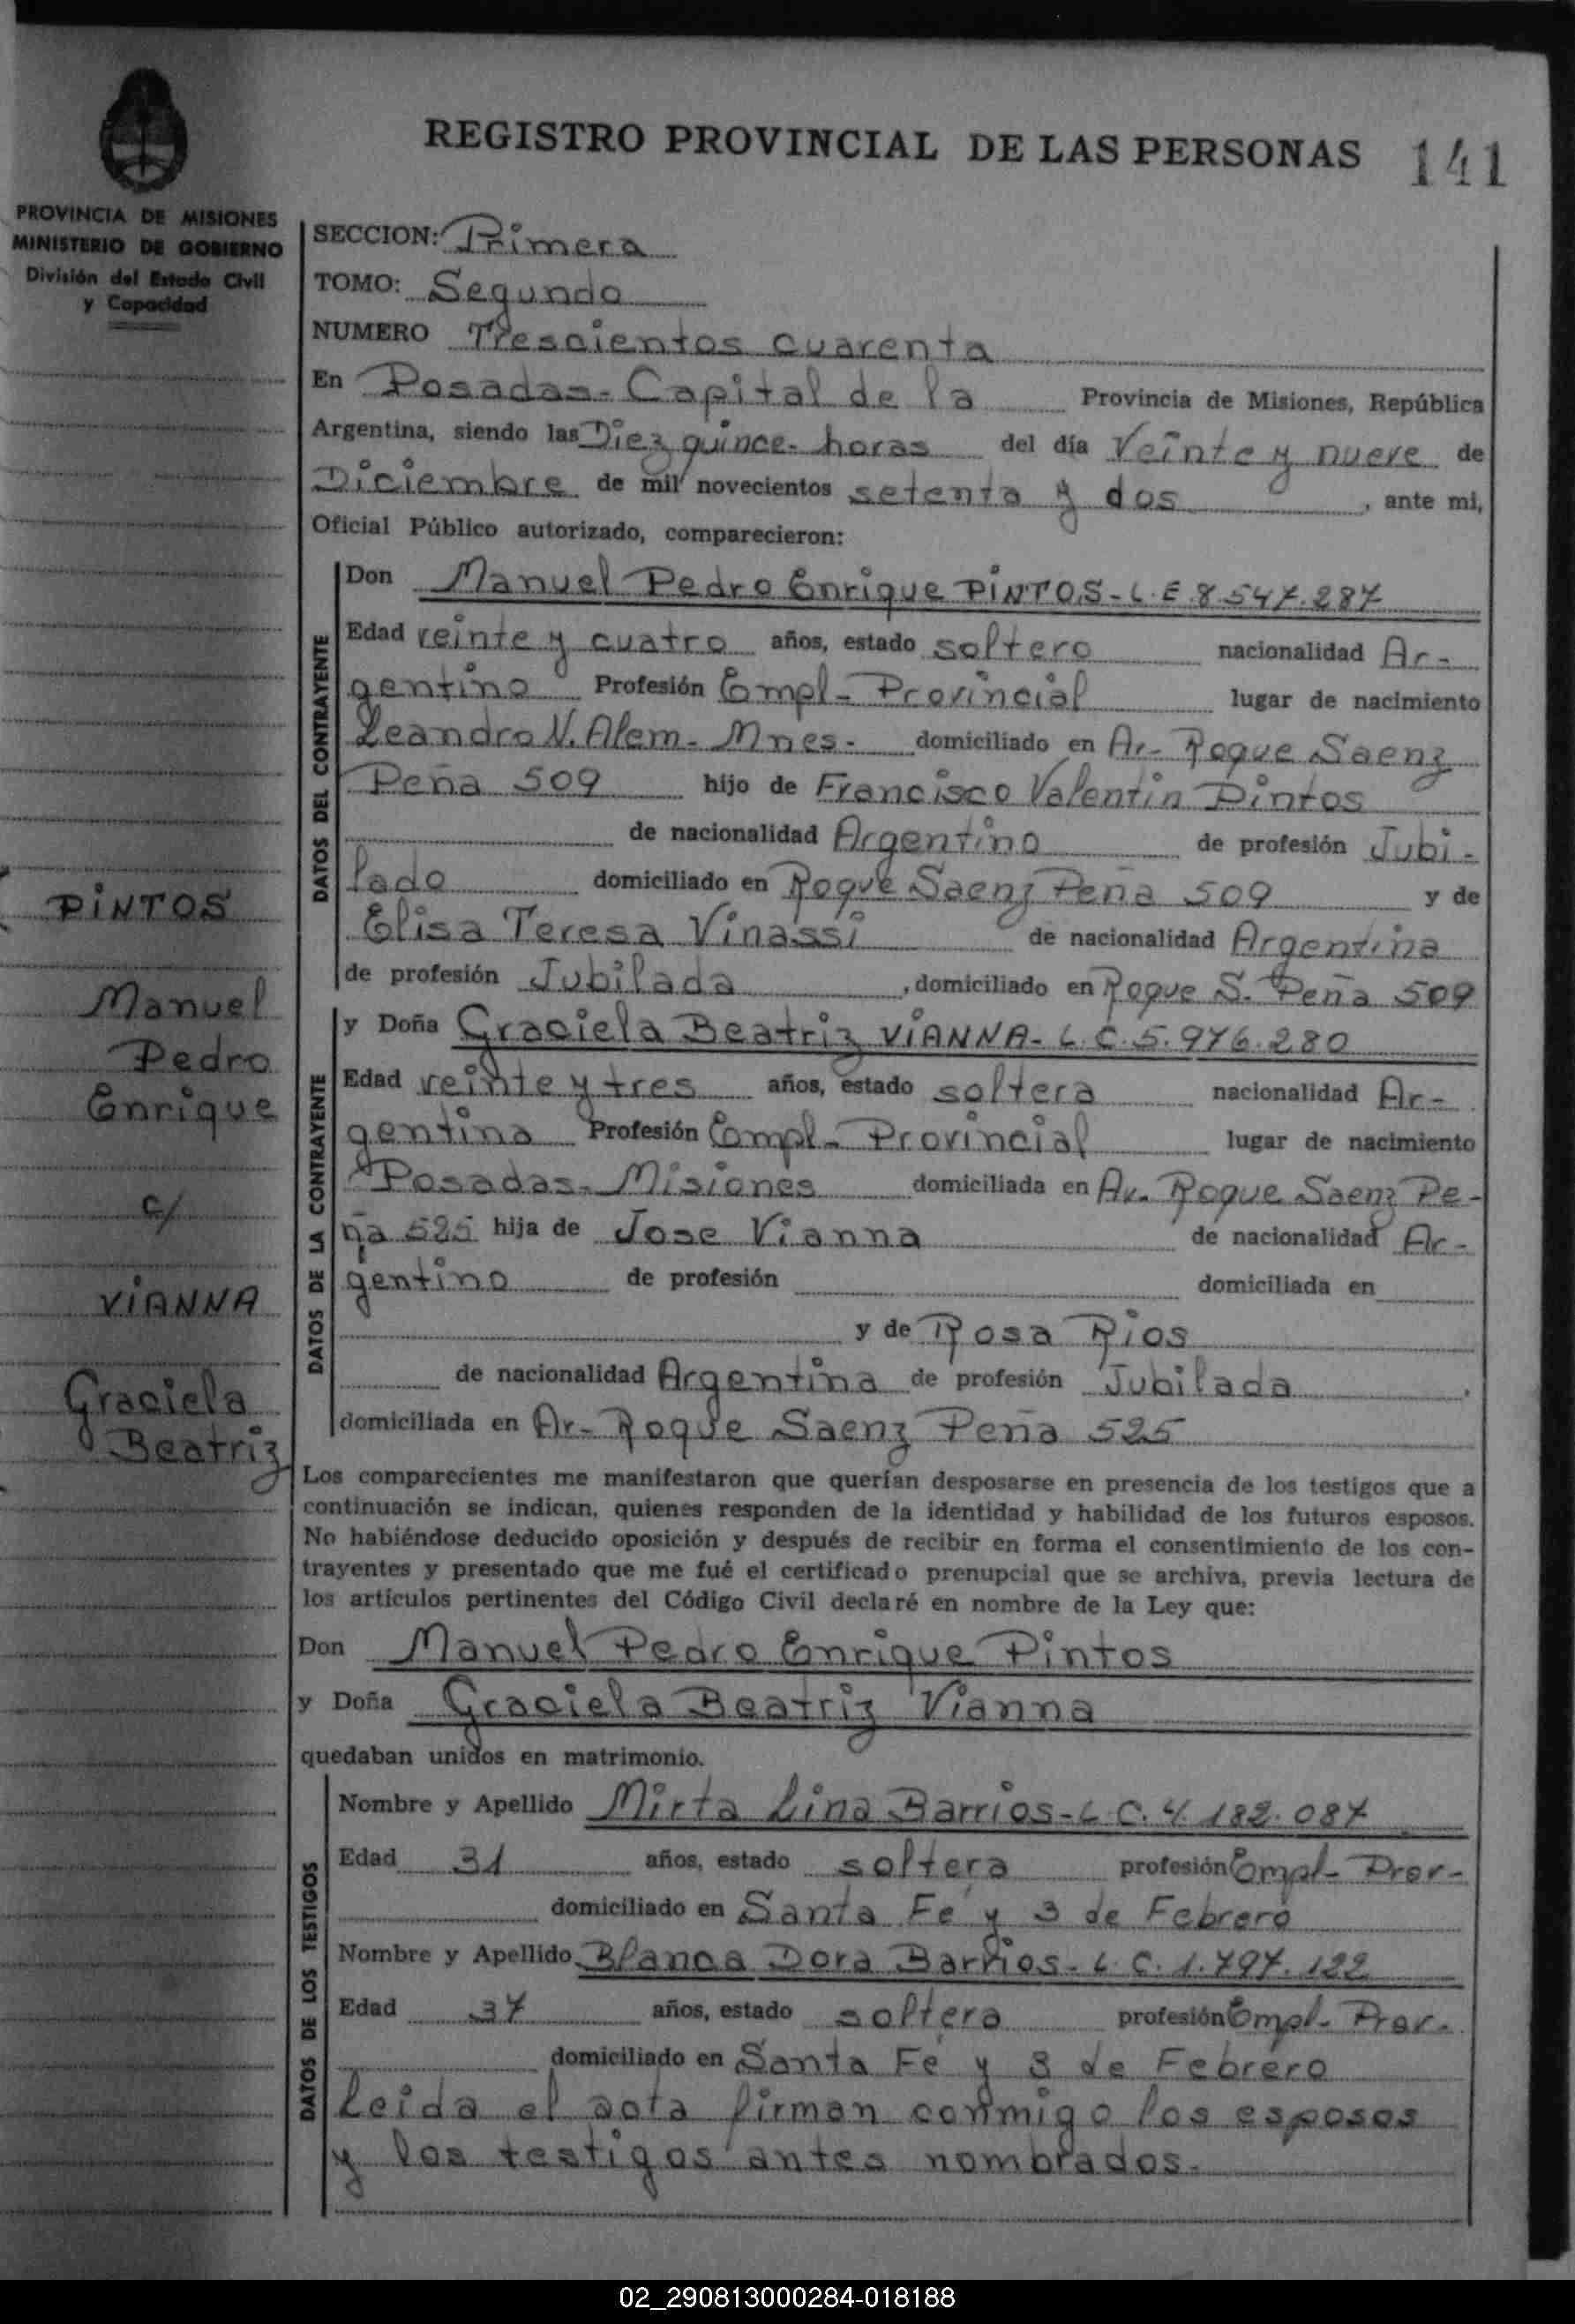 REGISTRO PROVINCIAL DE LAS PERSONAS 141
PROVINCIA DE MISIONES
MINISTERIO DE GOBIERNO
División del Estado Civil
y Capacidad
SECCION: Primera
TOMO: Segundo
NUMERO Trescientos cuarenta
En Posadas - Capital de la Provincia de Misiones, República
Argentina, siendo las Diez quince - horas del día Veinte y nueve de
Diciembre de mil novecientos setenta y dos, ante mi,
Oficial Público autorizado, comparecieron:
DATOS DEL CONTRAYENTE
Don Manuel Pedro Enrique PINTOS - L.E 8.547.287
Edad veinte y cuatro años, estado soltero nacionalidad Ar-
gentino Profesión Empl- Provincial lugar de nacimiento
Leandro N. Alem - Mnes - domiciliado en Av- Roque Saenz
Peña 509 hijo de Francisco Valentin Pintos
de nacionalidad Argentino de profesión Jubi-
lado domiciliado en Roque Saenz Peña 509 y de
Elisa Teresa Vinassi de nacionalidad Argentina
de profesión Jubilada, domiciliado en Roque S. Peña 509
DATOS DE LA CONTRAYENTE
y Doña Graciela Beatriz VIANNA - L.C. 5.976.280
Edad veinte y tres años, estado soltera nacionalidad Ar-
gentina Profesión Empl- Provincial lugar de nacimiento
Posadas - Misiones domiciliada en Av. Roque Saenz Pe-
ña 525 hija de Jose Vianna de nacionalidad Ar-
gentino de profesión domiciliada en
y de Rosa Rios
de nacionalidad Argentina de profesión Jubilada,
domiciliada en Av- Roque Saenz Peña 525
PINTOS
Manuel
Pedro
Enrique
c/
VIANNA
Graciela
Beatriz
Los comparecientes me manifestaron que querían desposarse en presencia de los testigos que a
continuación se indican, quienes responden de la identidad y habilidad de los futuros esposos.
No habiéndose deducido oposición y después de recibir en forma el consentimiento de los con-
trayentes y presentado que me fué el certificado prenupcial que se archiva, previa lectura de
los artículos pertinentes del Código Civil declaré en nombre de la Ley que:
Don Manuel Pedro Enrique Pintos
y Doña Graciela Beatriz Vianna
quedaban unidos en matrimonio.
DATOS DE LOS TESTIGOS
Nombre y Apellido Mirta Lina Barrios - L.C. 4.182.087
Edad 31 años, estado soltera profesión Empl- Prov-
domiciliado en Santa Fe y 3 de Febrero
Nombre y Apellido Blanca Dora Barrios - L.C. 1.797.122
Edad 37 años, estado soltera profesión Empl- Prov-
domiciliado en Santa Fe y 3 de Febrero
Leida el acta firman conmigo los esposos
y los testigos antes nombrados.
02_290813000284-018188